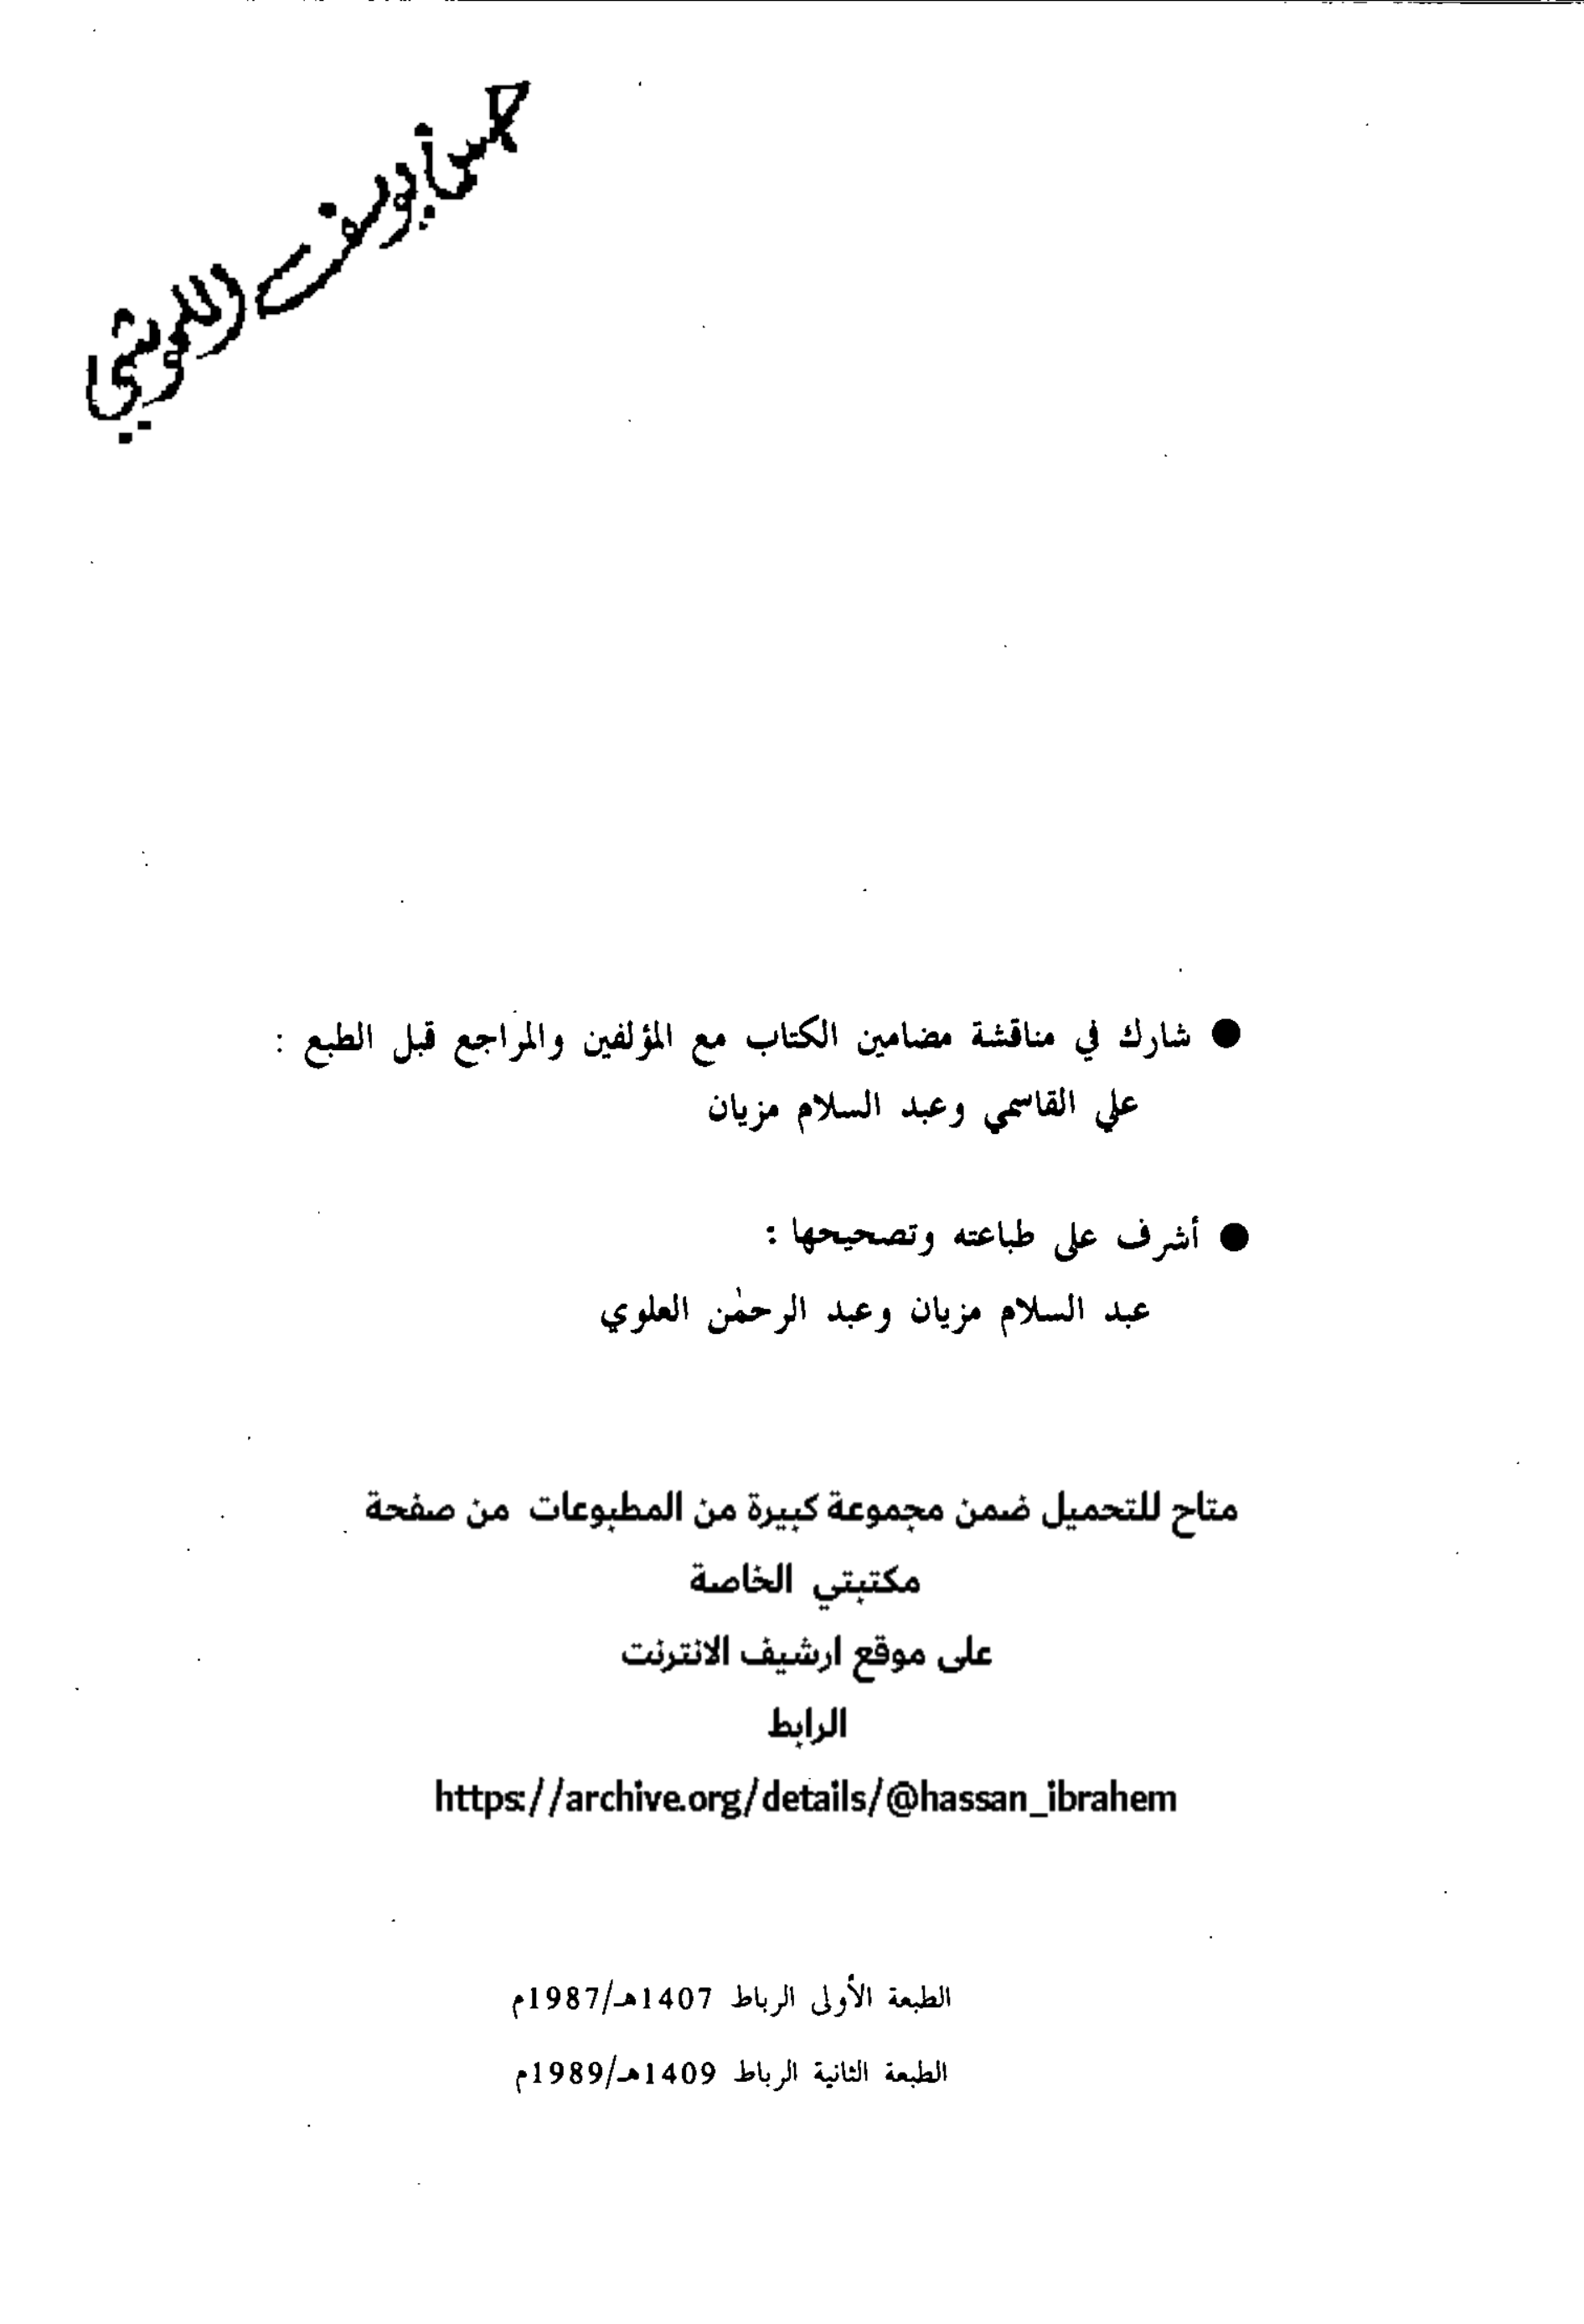 ● شارك في مناقشة مضامين الكتاب مع المؤلفين والمراجع قبل الطبع :
علي القاسمي وعبد السلام مزيان
● أشرف على طباعته وتصحيحها :
عبد السلام مزيان وعبد الرحمٰن العلوي
متاح للتحميل ضمن مجموعة كبيرة من المطبوعات من صفحة
مكتبتي الخاصة
على موقع ارشيف الانترنت
الرابط
https://archive.org/details/@hassan_ibrahem
الطبعة الأولى الرباط 1407هـ/1987م
الطبعة الثانية الرباط 1409هـ/1989م